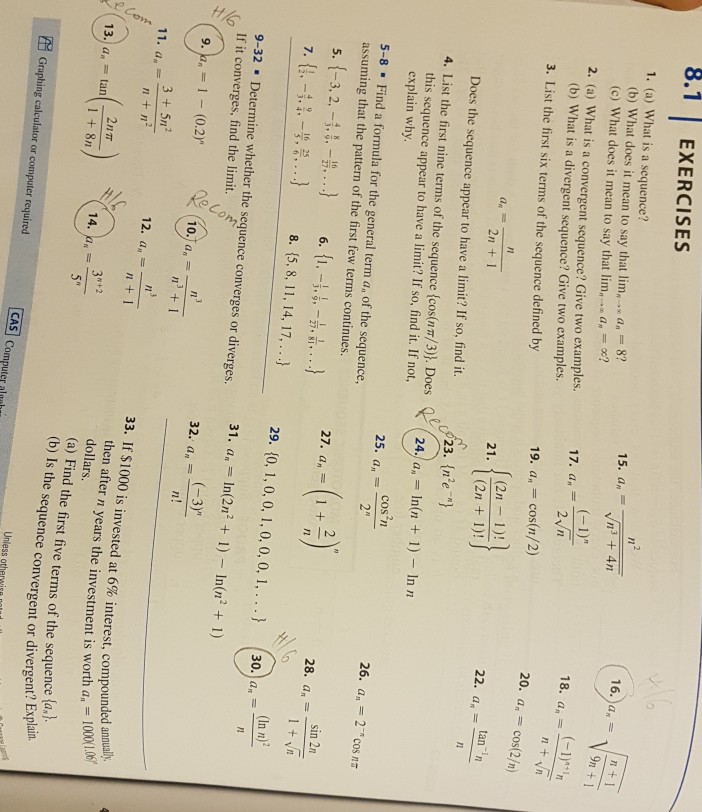 8.1 EXERCISES
1. (a) What is a sequence?
(b) What does it mean to say that lim n→∞ aₙ = 8?
(c) What does it mean to say that lim n→∞ aₙ = ∞?
2. (a) What is a convergent sequence? Give two examples.
(b) What is a divergent sequence? Give two examples.
3. List the first six terms of the sequence defined by
aₙ = n/(2n + 1)
Does the sequence appear to have a limit? If so, find it.
4. List the first nine terms of the sequence {cos(nπ/3)}. Does
this sequence appear to have a limit? If so, find it. If not,
explain why.
5–8 ▪ Find a formula for the general term aₙ of the sequence,
assuming that the pattern of the first few terms continues.
5. {−3, 2, −4/3, 8/9, −16/27, . . .}
6. {1, −1/3, 1/9, −1/27, 1/81, . . .}
7. {1/2, −4/3, 9/4, −16/5, 25/6, . . .}
8. {5, 8, 11, 14, 17, . . .}
9–32 ▪ Determine whether the sequence converges or diverges.
If it converges, find the limit.
H/6
9. aₙ = 1 − (0.2)ⁿ
Recom
10. aₙ = n³/(n³ + 1)
11. aₙ = (3 + 5n²)/(n + n²)
12. aₙ = n³/(n + 1)
Recom
13. aₙ = tan(2nπ/(1 + 8n))
H/6
14. aₙ = 3ⁿ⁺²/5ⁿ
15. aₙ = n²/√(n³ + 4n)
H/6
16. aₙ = √((n + 1)/(9n + 1))
17. aₙ = (−1)ⁿ/(2√n)
18. aₙ = (−1)ⁿ⁺¹n/(n + √n)
19. aₙ = cos(n/2)
20. aₙ = cos(2/n)
21. {(2n − 1)!/(2n + 1)!}
22. aₙ = tan⁻¹n/n
Recom
23. {n²e⁻ⁿ}
24. aₙ = ln(n + 1) − ln n
25. aₙ = cos²n/2ⁿ
26. aₙ = 2⁻ⁿ cos nπ
27. aₙ = (1 + 2/n)ⁿ
28. aₙ = sin 2n/(1 + √n)
29. {0, 1, 0, 0, 1, 0, 0, 0, 1, . . .}
H/6
30. aₙ = (ln n)²/n
31. aₙ = ln(2n² + 1) − ln(n² + 1)
32. aₙ = (−3)ⁿ/n!
33. If $1000 is invested at 6% interest, compounded annually,
then after n years the investment is worth aₙ = 1000(1.06)ⁿ
dollars.
(a) Find the first five terms of the sequence {aₙ}.
(b) Is the sequence convergent or divergent? Explain.
Graphing calculator or computer required
CAS Computer algebra
Unless otherwise noted